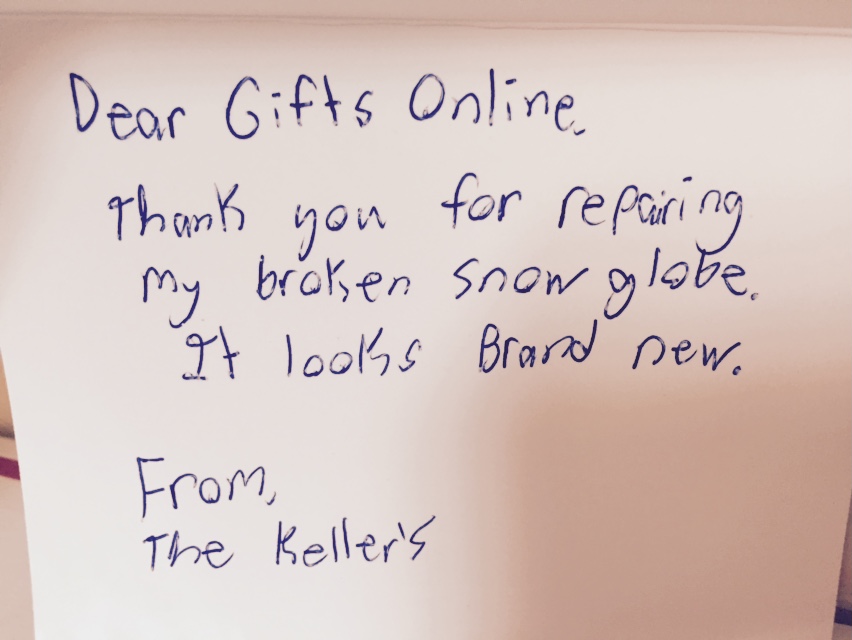 Dear Gifts Online,
Thank you for repairing
my broken snow globe.
It looks Brand new.
From,
The Keller's